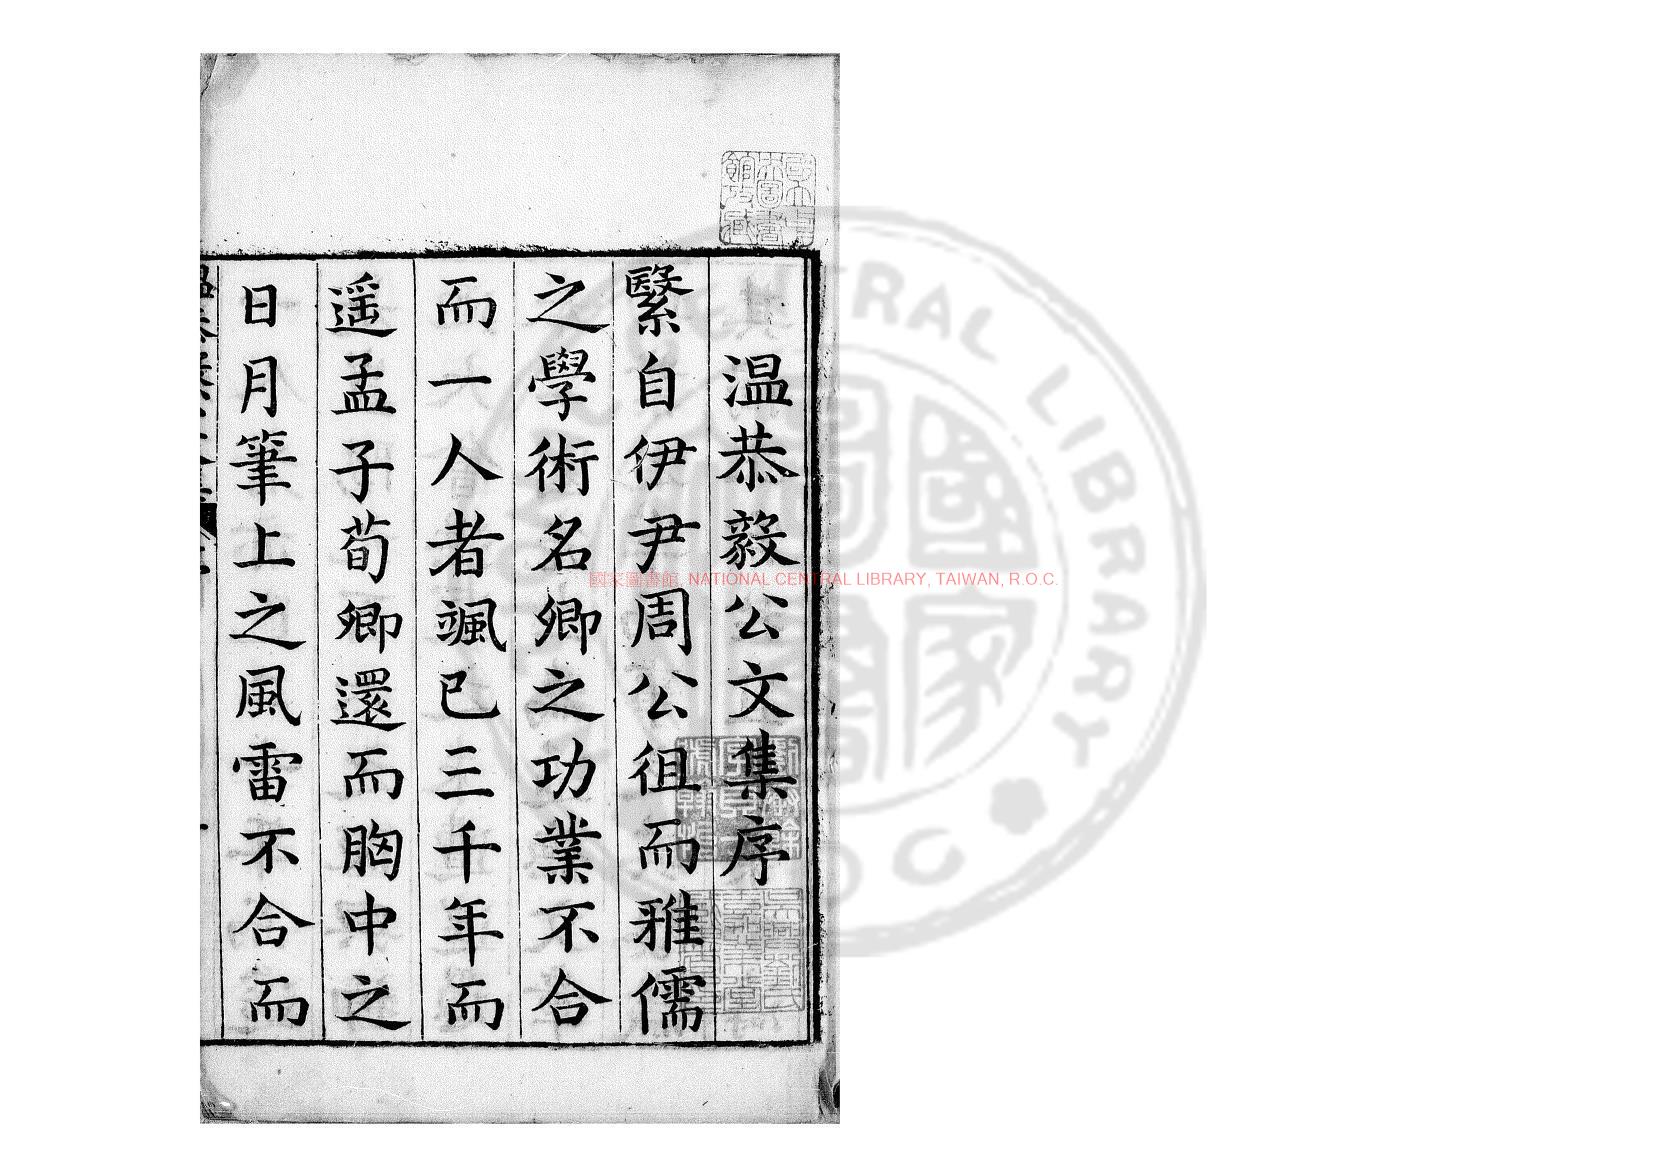 温恭毅公文集序
繄自伊尹周公徂而雅儒
之學術名卿之功業不合
而一人者颯已三千年而
遥孟子荀卿還而胸中之
日月筆上之風雷不合而
國家圖書館, NATIONAL CENTRAL LIBRARY, TAIWAN, R.O.C.
CENTRAL LIBRARY